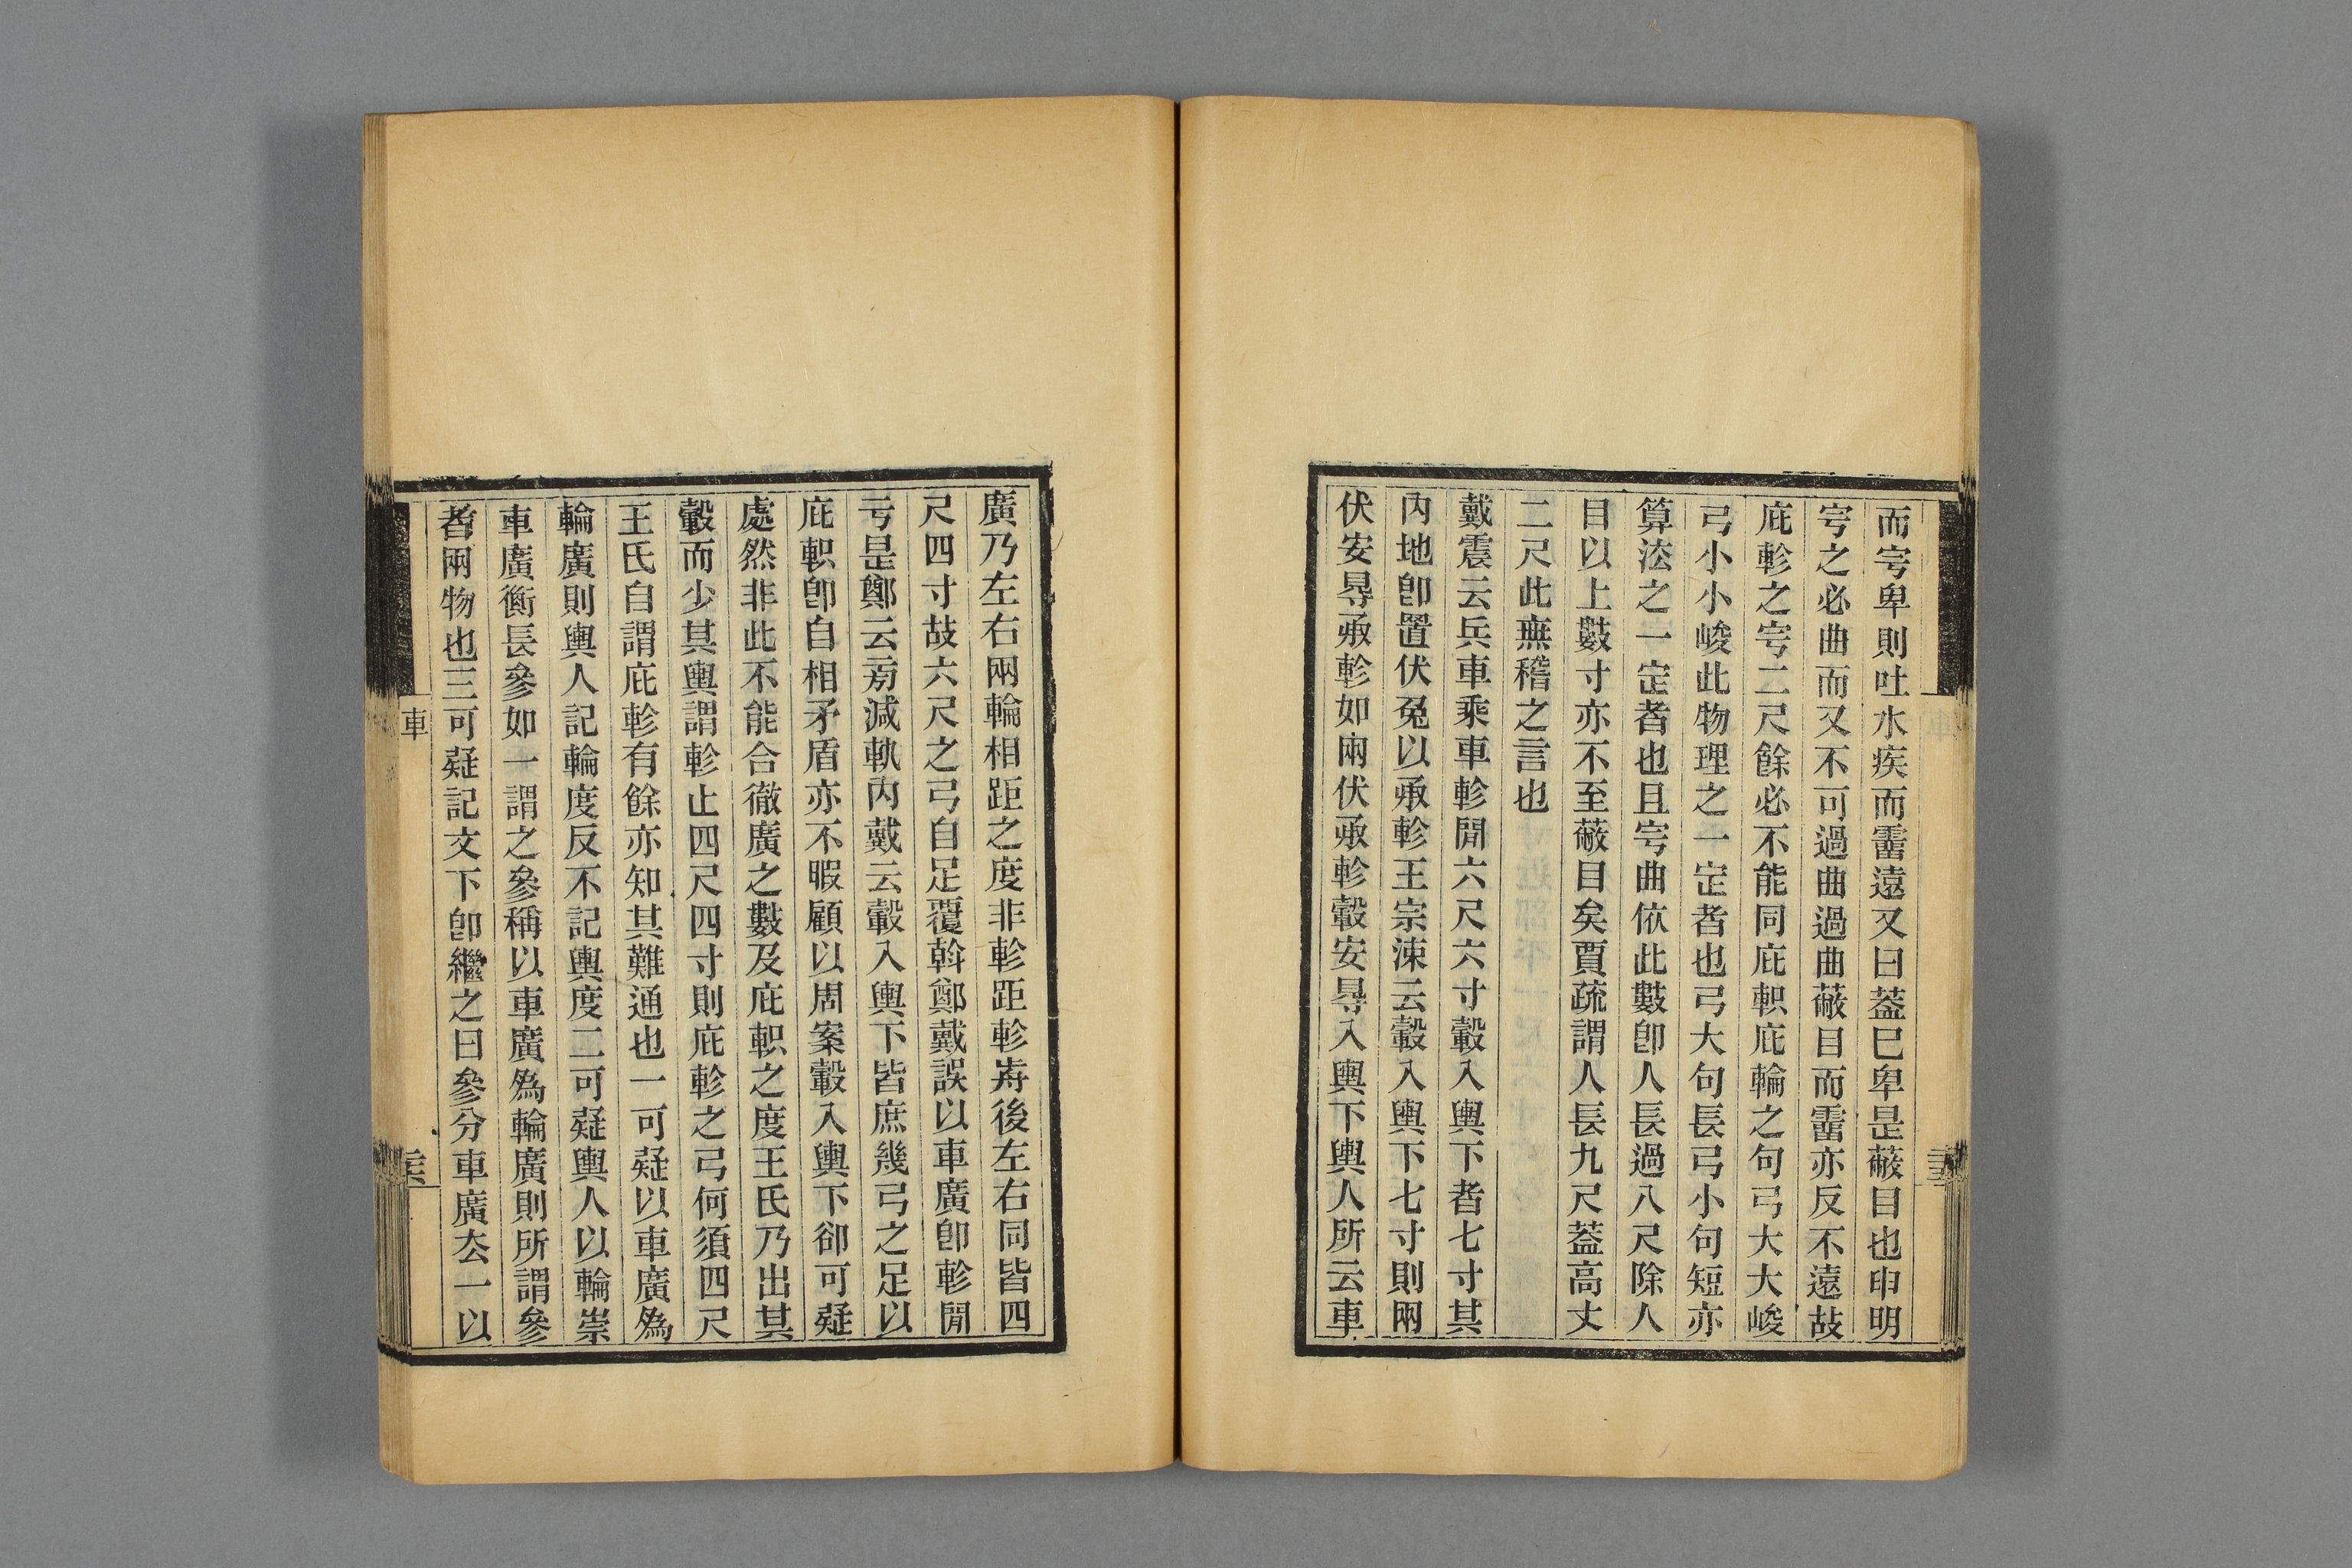 而宇卑則吐水疾而霤遠又曰葢巳卑是蔽目也申明
宇之必曲而又不可過曲過曲蔽目而霤亦反不遠故
庇軫之宇二尺餘必不能同庇軹庇輪之句弓大大峻
弓小小峻此物理之一定者也弓大句長弓小句短亦
算法之一定者也且宇曲依此數卽人長過八尺除人
目以上數寸亦不至蔽目矣賈疏謂人長九尺葢高丈
二尺此無稽之言也
戴震云兵車乘車軫閒六尺六寸轂入輿下者七寸其
內地卽置伏兔以承軫王宗涑云轂入輿下七寸則兩
伏安㝵承軫如兩伏承軫轂安㝵入輿下輿人所云車
廣乃左右兩輪相距之度非軫距軫歬後左右同皆四
尺四寸故六尺之弓自足覆斡鄭戴誤以車廣卽軫閒
亏是鄭云㫄減軌內戴云轂入輿下皆庶幾弓之足以
庇軹卽自相矛盾亦不暇顧以周案轂入輿下卻可疑
處然非此不能合徹廣之數及庇軹之度王氏乃出其
轂而少其輿謂軫止四尺四寸則庇軫之弓何須四尺
王氏自謂庇軫有餘亦知其難通也一可疑以車廣為
輪廣則輿人記輪度反不記輿度二可疑輿人以輪崇
車廣衡長參如一謂之參稱以車廣為輪廣則所謂參
者兩物也三可疑記文下卽繼之曰參分車廣厺一以
車